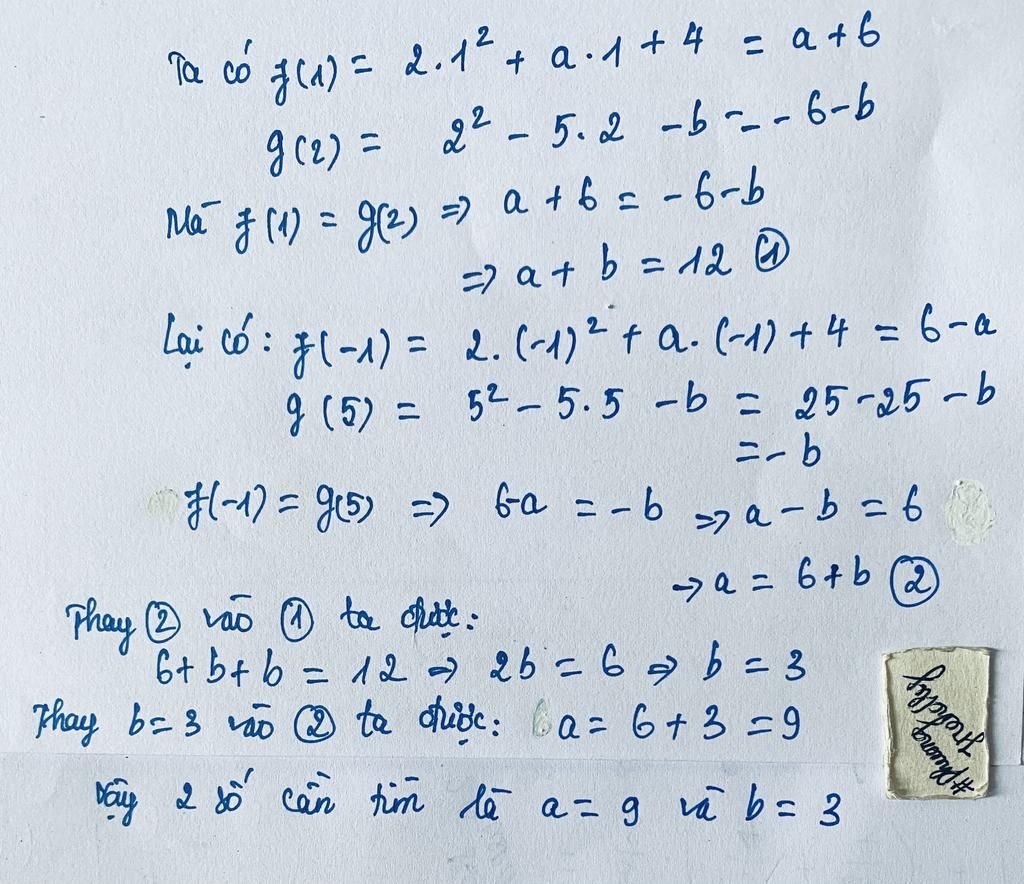 Ta có f(1) = 2.1² + a.1 + 4 = a + 6
g(2) = 2² - 5.2 - b = - 6 - b
Mà f(1) = g(2) => a + 6 = - 6 - b
=> a + b = 12 ①
Lại có: f(-1) = 2.(-1)² + a.(-1) + 4 = 6 - a
g(5) = 5² - 5.5 - b = 25 - 25 - b
= - b
f(-1) = g(5) => 6-a = - b => a - b = 6
-> a = 6 + b ②
Thay ② vào ① ta được:
6 + b + b = 12 => 2b = 6 => b = 3
Thay b = 3 vào ② ta được: a = 6 + 3 = 9
Vậy 2 số cần tìm là a = 9 và b = 3
#phuong